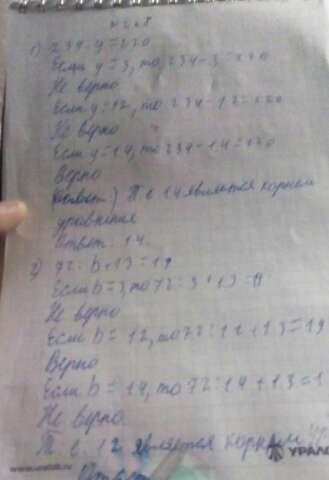 1) 234-y=220
Если y=3, то 234-3=220
Не верно
Если y=12, то 234-12=220
Не верно
Если y=14, то 234-14=220
Верно
Т е 14 является корнем
уравнения
Ответ: 14.
2) 72: b+13=19
Если b=3, то 72: 3+13=19
Не верно
Если b= 12, то 72:12+13=19
Верно
Если b= 14, то 72:14+13=1
Не верно.
Т. е. 12 является корнем
www.uralsib.ru УРАЛС
Ответ